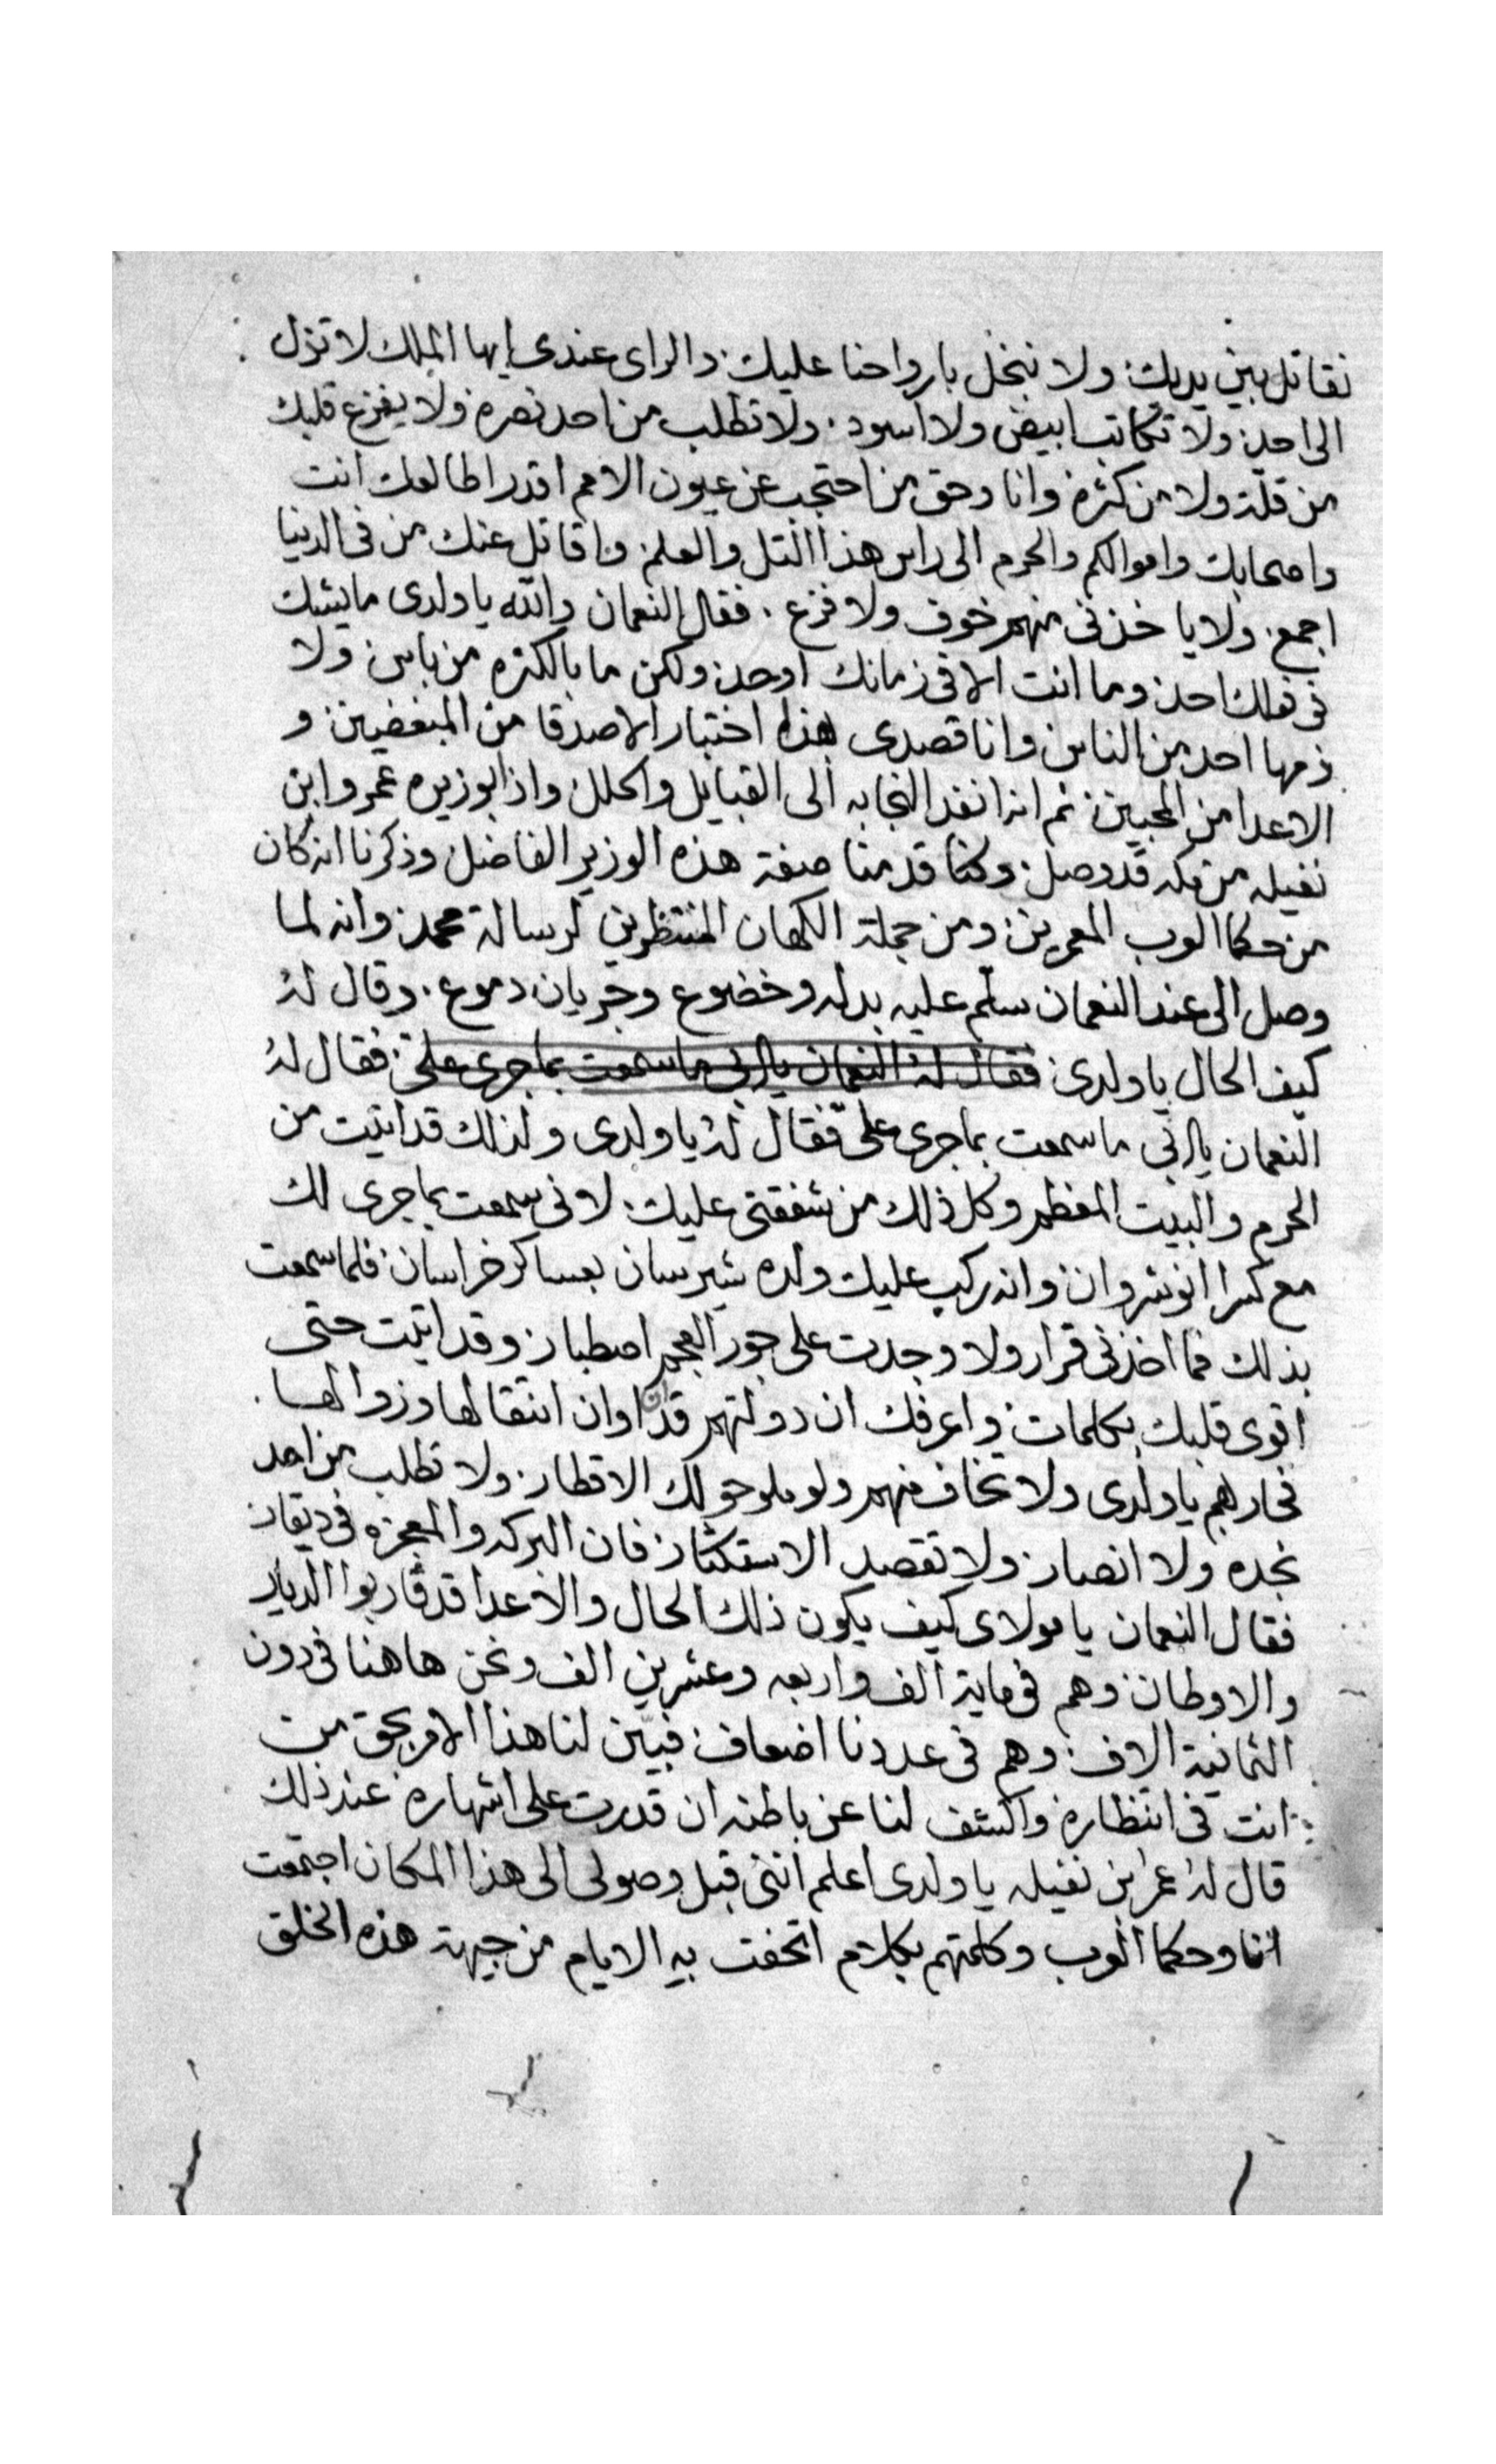 نقاتل بين يديك ولا نبخل بارواحنا عليك والراى عندى ايها الملك لا تزل
الى احد ولا تكاتب ابيض ولا اسود ولا تطلب من احد نصره ولا يفزع قلبك
من قلة ولا من كثرة وانا وحق من احتجب عن عيون الامم اقدر اطالعك انت
واصحابك واموالكم والحرم الى راس هذا التل والعلم واقاتل عنك من فى الدنيا
اجمع ولا ياخذنى منهم خوف ولا فزع فقال النعمان والله يا ولدى ما يشك
فى فعلك احد وما انت الا فى زمانك اوحد ولكن ما بالكثره من باس ولا
ذمها احد من الناس وانا قصدى بهذا اختبار الاصدقا من المبغضين و
الاعدا من المحبين ثم انه انفد النجابه الى القبايل والحلل واذا بوزيره عمرو ابن
نفيله من مكه قد وصل وكنا قدمنا صفة هذه الوزير الفاضل وذكرنا انه كان
من حكما العرب المعمرين ومن جملة الكهان المنتظرين لرسالة محمد وانه لما
وصل الى عند النعمان سلم عليه بدله وخضوع وجريان دموع وقال له
كيف الحال يا ولدى فقال له النعمان يا ابى ما سمعت بما جرى على فقال له
النعمان يا ابى ما سمعت بما جرى علىّ فقال له يا ولدى ولذلك قد اتيت من
الحرم والبيت المعظم وكل ذلك من شفقتى عليك لانى سمعت بما جرى لك
مع كسرا انوشروان وانه ركب عليك ولده شيرسان بعساكر خراسان فلما سمعت
بذلك فما اخذنى قرار ولا وجدت على جور العجم اصطبار وقد اتيت حتى
اقوى قلبك بكلمات واعرفك ان دولتهم قد ان اوان انتقالها وزوالها
فحاربهم يا ولدى ولا تخاف منهم ولو ملو حولك الاقطار ولا تطلب من احد
نجده ولا انصار ولا تقصد الاستكثار فان البركه والمعجزه فى ذيقار
فقال النعمان يا مولاى كيف يكون ذلك الحال والاعدا قد قاربوا الديار
والاوطان وهم فى ماية الف واربعه وعشرين الف ونحن هاهنا فى دون
الثمانية الاف وهم فى عددنا اضعاف فبيّن لنا هذا الامر بحق من
انت فى انتظاره واكشف لنا عن باطنه ان قدرت على اشهاره عند ذلك
قال له عمر ابن نفيله يا ولدى اعلم اننى قبل وصولى الى هذا المكان اجتمعت
انا وحكما العرب وكلمتهم بكلام اتحفت به الايام من جيهة هذه الخلق